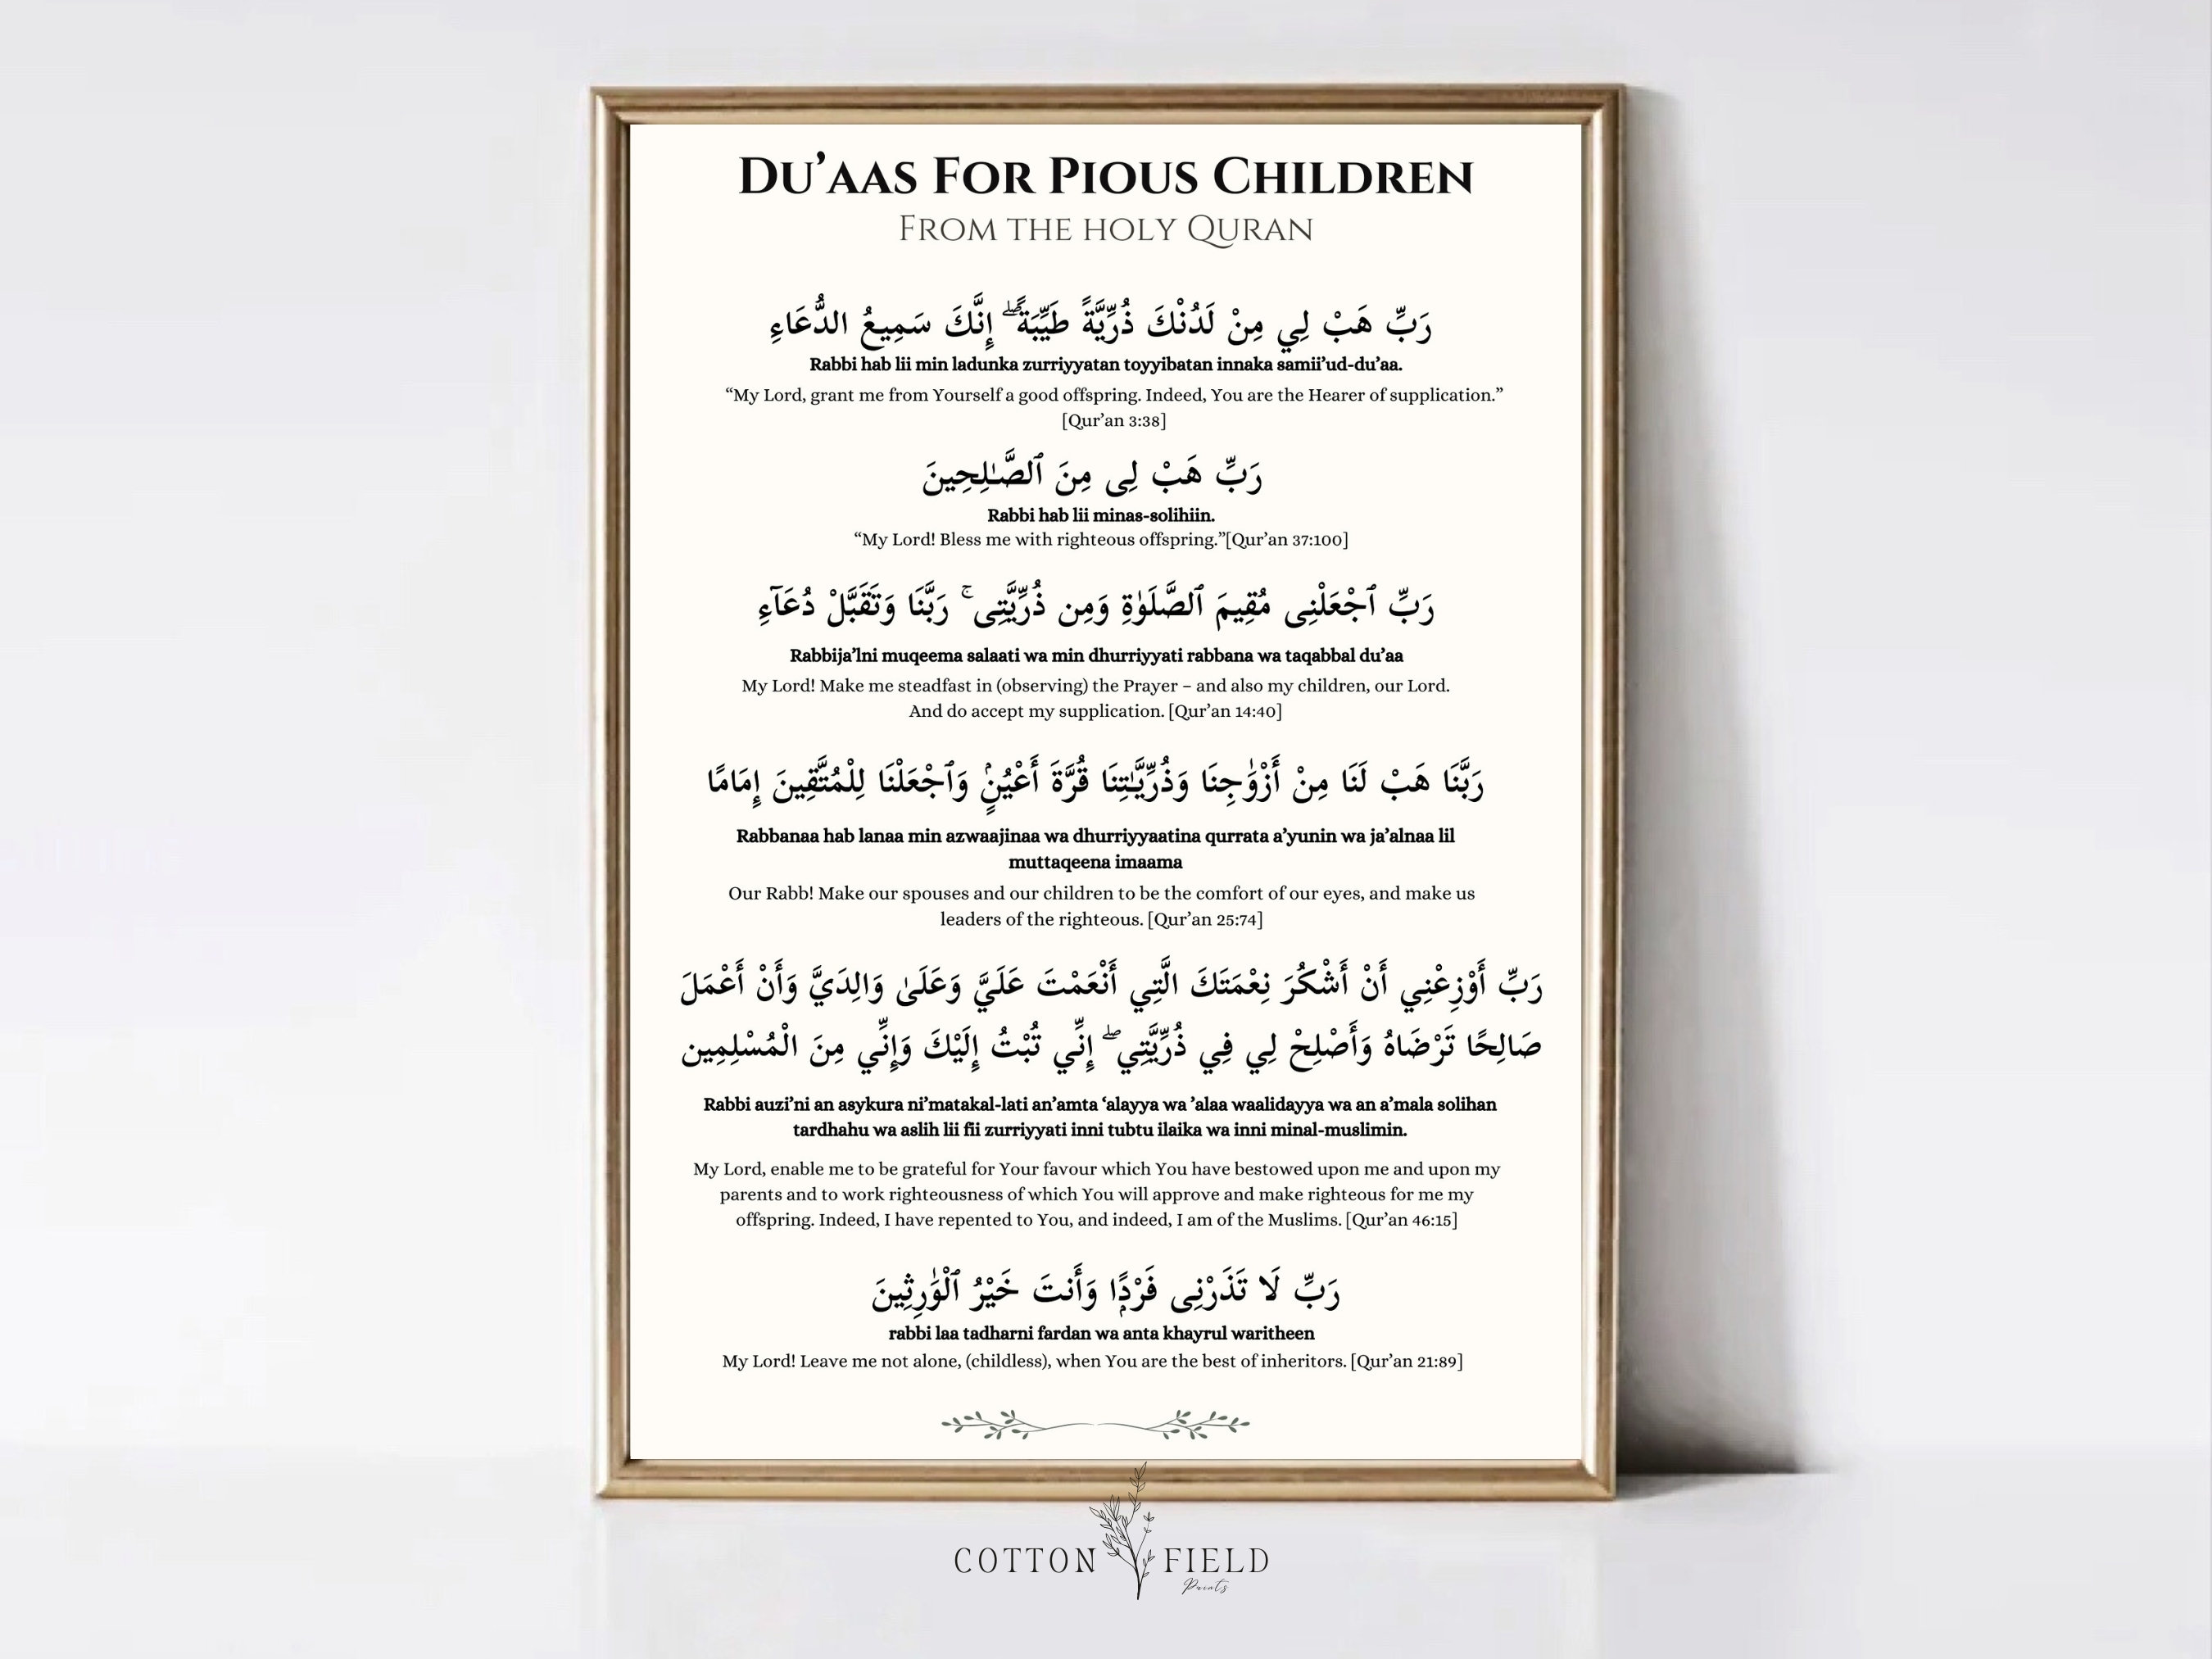 Du’aas For Pious Children
From the Holy Quran
رَبِّ هَبْ لِي مِنْ لَدُنْكَ ذُرِّيَّةً طَيِّبَةً ۖ إِنَّكَ سَمِيعُ الدُّعَاءِ
Rabbi hab lii min ladunka zurriyyatan toyyibatan innaka samii’ud-du’aa.
“My Lord, grant me from Yourself a good offspring. Indeed, You are the Hearer of supplication.”
[Qur’an 3:38]
رَبِّ هَبْ لِى مِنَ ٱلصَّـٰلِحِينَ
Rabbi hab lii minas-solihiin.
“My Lord! Bless me with righteous offspring.”[Qur’an 37:100]
رَبِّ ٱجْعَلْنِى مُقِيمَ ٱلصَّلَوٰةِ وَمِن ذُرِّيَّتِى ۚ رَبَّنَا وَتَقَبَّلْ دُعَآءِ
Rabbija’lni muqeema salaati wa min dhurriyyati rabbana wa taqabbal du’aa
My Lord! Make me steadfast in (observing) the Prayer – and also my children, our Lord.
And do accept my supplication. [Qur’an 14:40]
رَبَّنَا هَبْ لَنَا مِنْ أَزْوَٰجِنَا وَذُرِّيَّـٰتِنَا قُرَّةَ أَعْيُنٍۢ وَٱجْعَلْنَا لِلْمُتَّقِينَ إِمَامًا
Rabbanaa hab lanaa min azwaajinaa wa dhurriyyaatina qurrata a’yunin wa ja’alnaa lil
muttaqeena imaama
Our Rabb! Make our spouses and our children to be the comfort of our eyes, and make us
leaders of the righteous. [Qur’an 25:74]
رَبِّ أَوْزِعْنِي أَنْ أَشْكُرَ نِعْمَتَكَ الَّتِي أَنْعَمْتَ عَلَيَّ وَعَلَىٰ وَالِدَيَّ وَأَنْ أَعْمَلَ
صَالِحًا تَرْضَاهُ وَأَصْلِحْ لِي فِي ذُرِّيَّتِي ۖ إِنِّي تُبْتُ إِلَيْكَ وَإِنِّي مِنَ الْمُسْلِمِين
Rabbi auzi’ni an asykura ni’matakal-lati an’amta ‘alayya wa ’alaa waalidayya wa an a’mala solihan
tardhahu wa aslih lii fii zurriyyati inni tubtu ilaika wa inni minal-muslimin.
My Lord, enable me to be grateful for Your favour which You have bestowed upon me and upon my
parents and to work righteousness of which You will approve and make righteous for me my
offspring. Indeed, I have repented to You, and indeed, I am of the Muslims. [Qur’an 46:15]
رَبِّ لَا تَذَرْنِى فَرْدًۭا وَأَنتَ خَيْرُ ٱلْوَٰرِثِينَ
rabbi laa tadharni fardan wa anta khayrul waritheen
My Lord! Leave me not alone, (childless), when You are the best of inheritors. [Qur’an 21:89]
COTTON FIELD
Prints